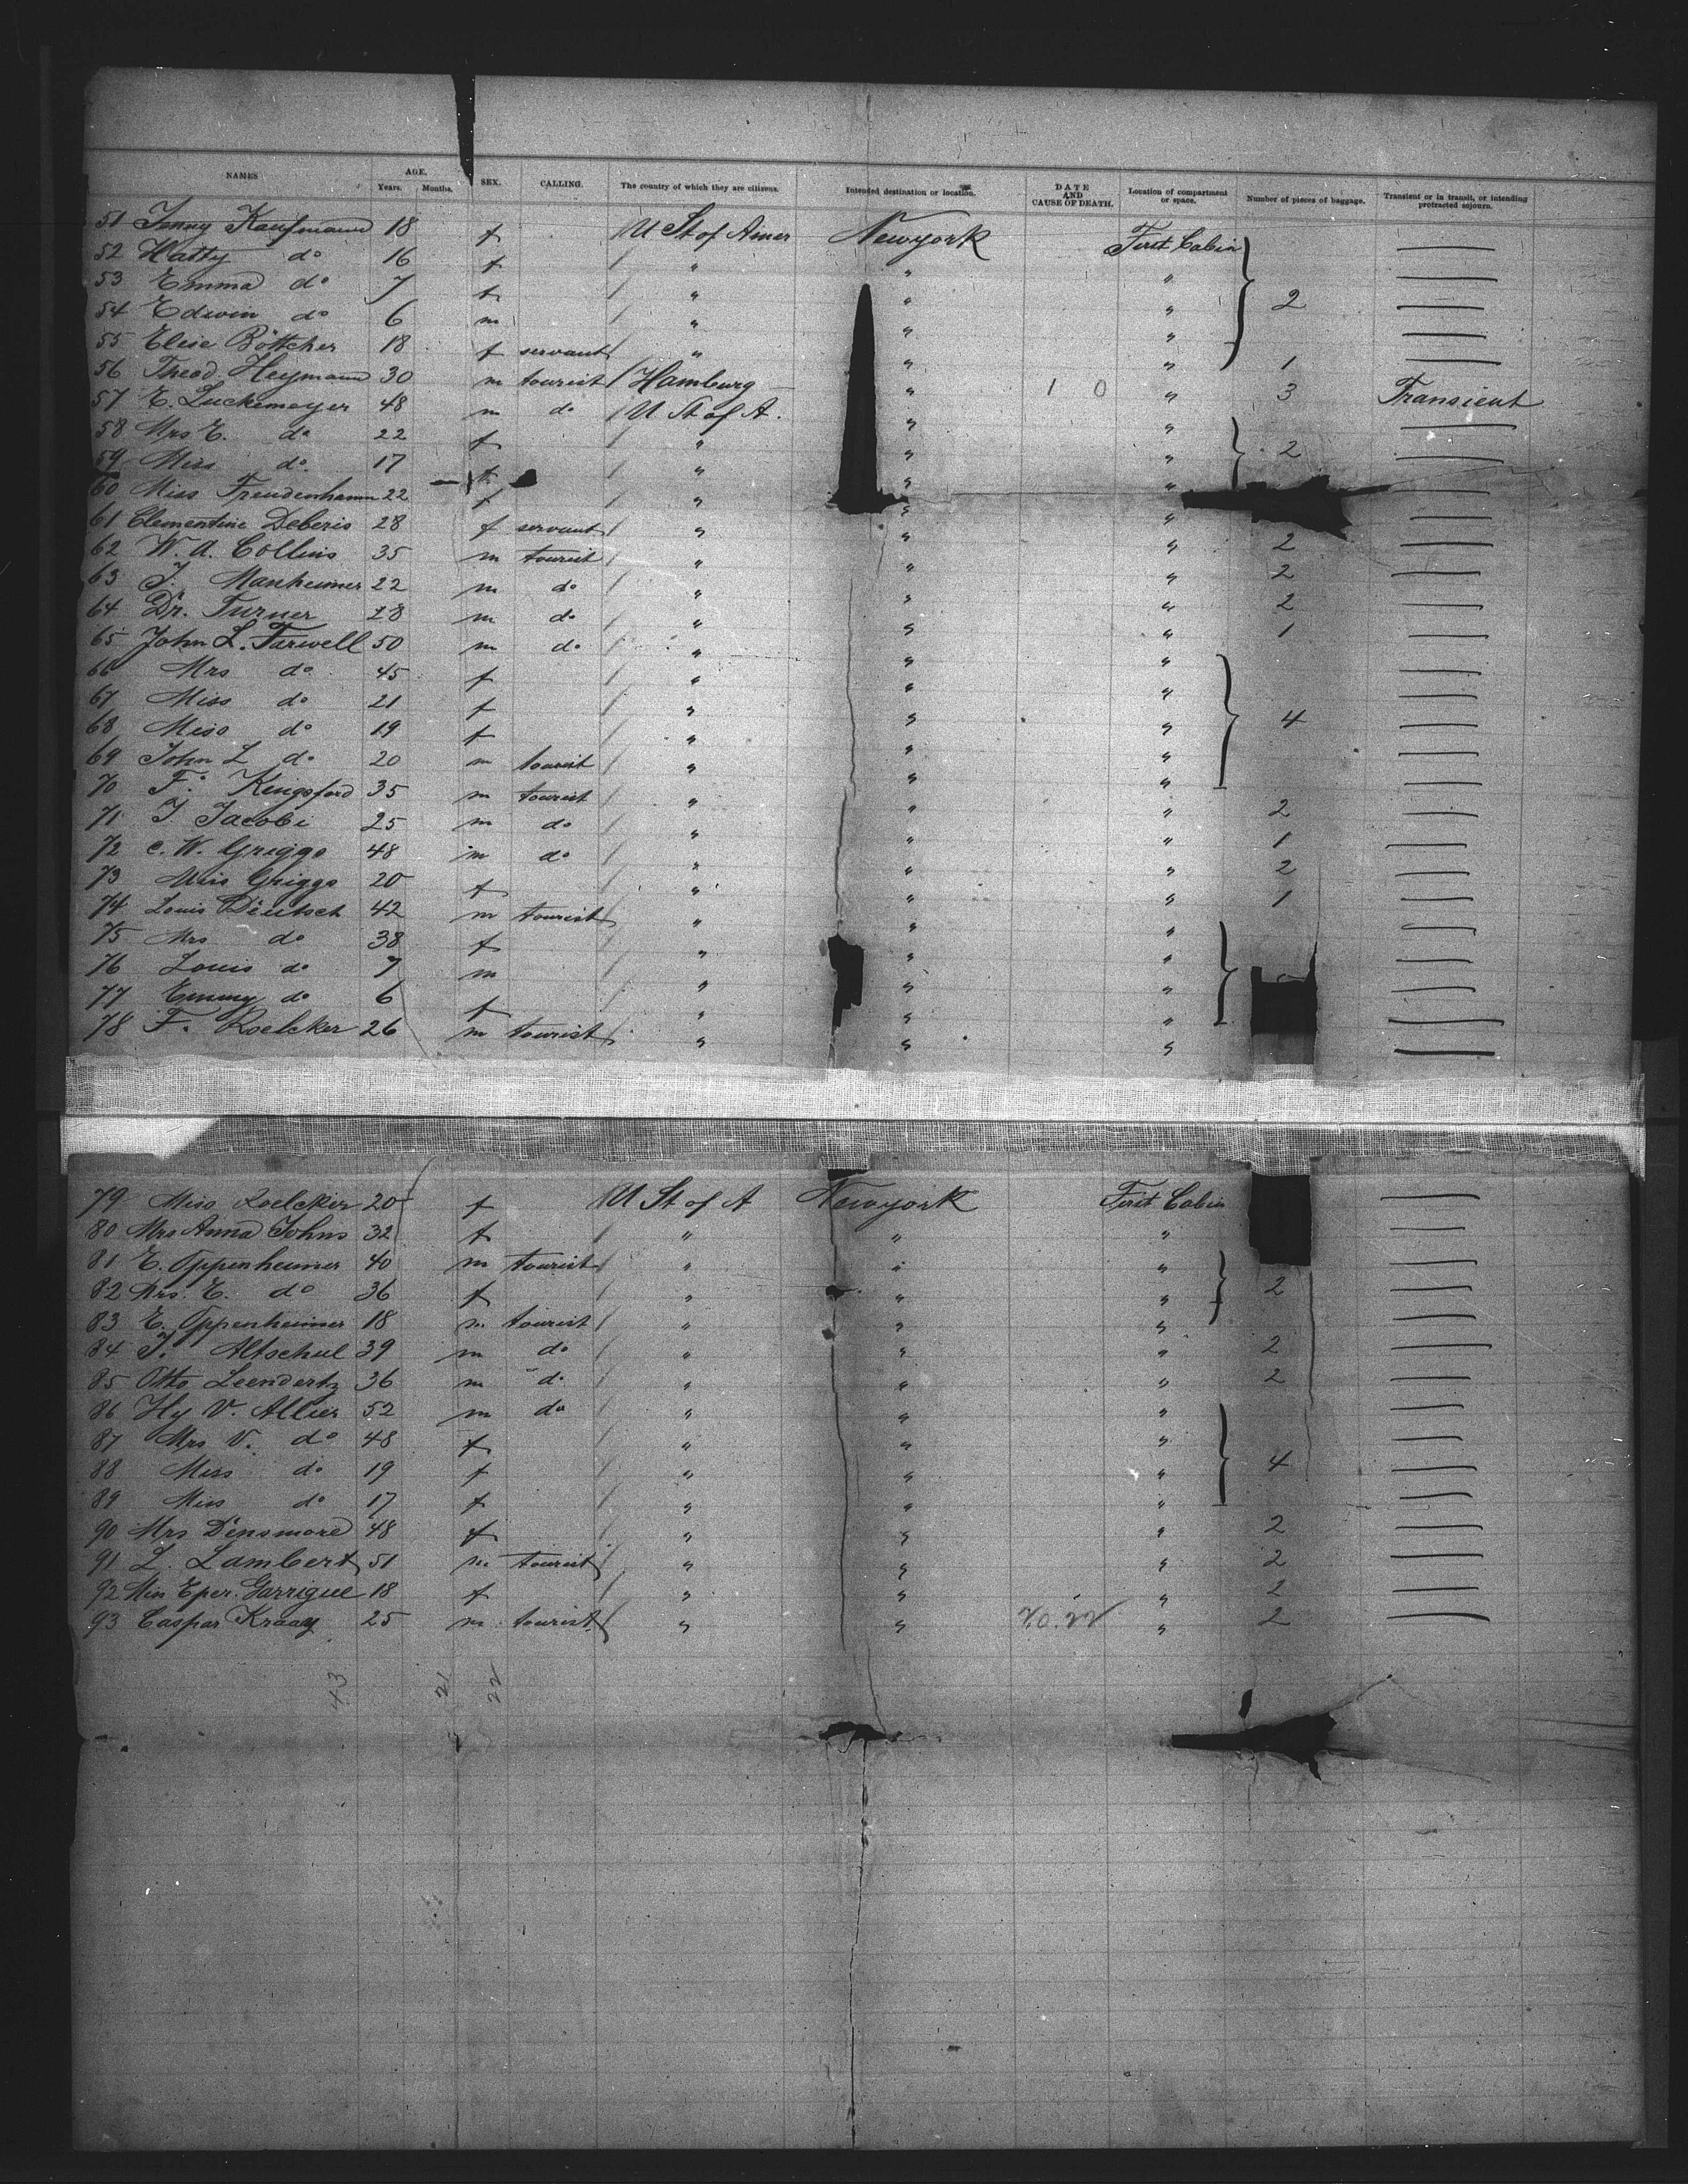 NAMES AGE. Years. Months. SEX. CALLING. The country of which they are citizens. Intended destination or location. DATE AND CAUSE OF DEATH. Location of compartment or space. Number of pieces of baggage. Transient or in transit, or intending protracted sojourn.
51 Jenny Kaufmann 18 f U St of Amer Newyork First Cabin
52 Hatty do 16 f " " "
53 Emma do 7 f " " " 2
54 Edwin do 6 m " " "
55 Elise Böttcher 18 f servant " " " 1
56 Theod. Heymann 30 m tourist Hamburg " 1 0 " 3 Transient
57 E. Luckemeyer 48 m do U St of A. " "
58 Mrs E. do 22 f " " " 2
59 Miss do 17 f " " "
60 Miss Freudenhamm 22 f " " "
61 Clementine Deberis 28 f servant " " " 2
62 W. A. Collins 35 m tourist " " " 2
63 J. Manheimer 22 m do " " " 2
64 Dr. Turner 28 m do " " " 1
65 John L. Farwell 50 m do " " "
66 Mrs do 45 f " " "
67 Miss do 21 f " " " 4
68 Miss do 19 f " " "
69 John L do 20 m tourist " " "
70 F. Kingsford 35 m tourist " " " 2
71 J. Jacobi 25 m do " " " 1
72 C. W. Griggs 48 m do " " " 2
73 Miss Griggs 20 f " " " 1
74 Louis Deutsch 42 m tourist " " "
75 Mrs do 38 f " " "
76 Louis do 7 m " " "
77 Emmy do 6 f " " "
78 F. Roelcker 26 m tourist " " "
79 Miss Roelcker 20 f U St of A Newyork First Cabin
80 Mrs Anna Johns 32 f " " "
81 E. Oppenheimer 40 m tourist " " "
82 Mrs. E. do 36 f " " " 2
83 E. Oppenheimer 18 m tourist " " "
84 J. Altschul 39 m do " " " 2
85 Otto Leendertz 36 m do " " " 2
86 Hy V. Allier 52 m do " " "
87 Mrs V. do 48 f " " "
88 Miss do 19 f " " " 4
89 Miss do 17 f " " "
90 Mrs Densmore 48 f " " " 2
91 L. Lambert 51 m tourist " " " 2
92 Miss Eper. Garrigue 18 f " " " 2
93 Caspar Kraay 25 m tourist " " " 2
43 21 22